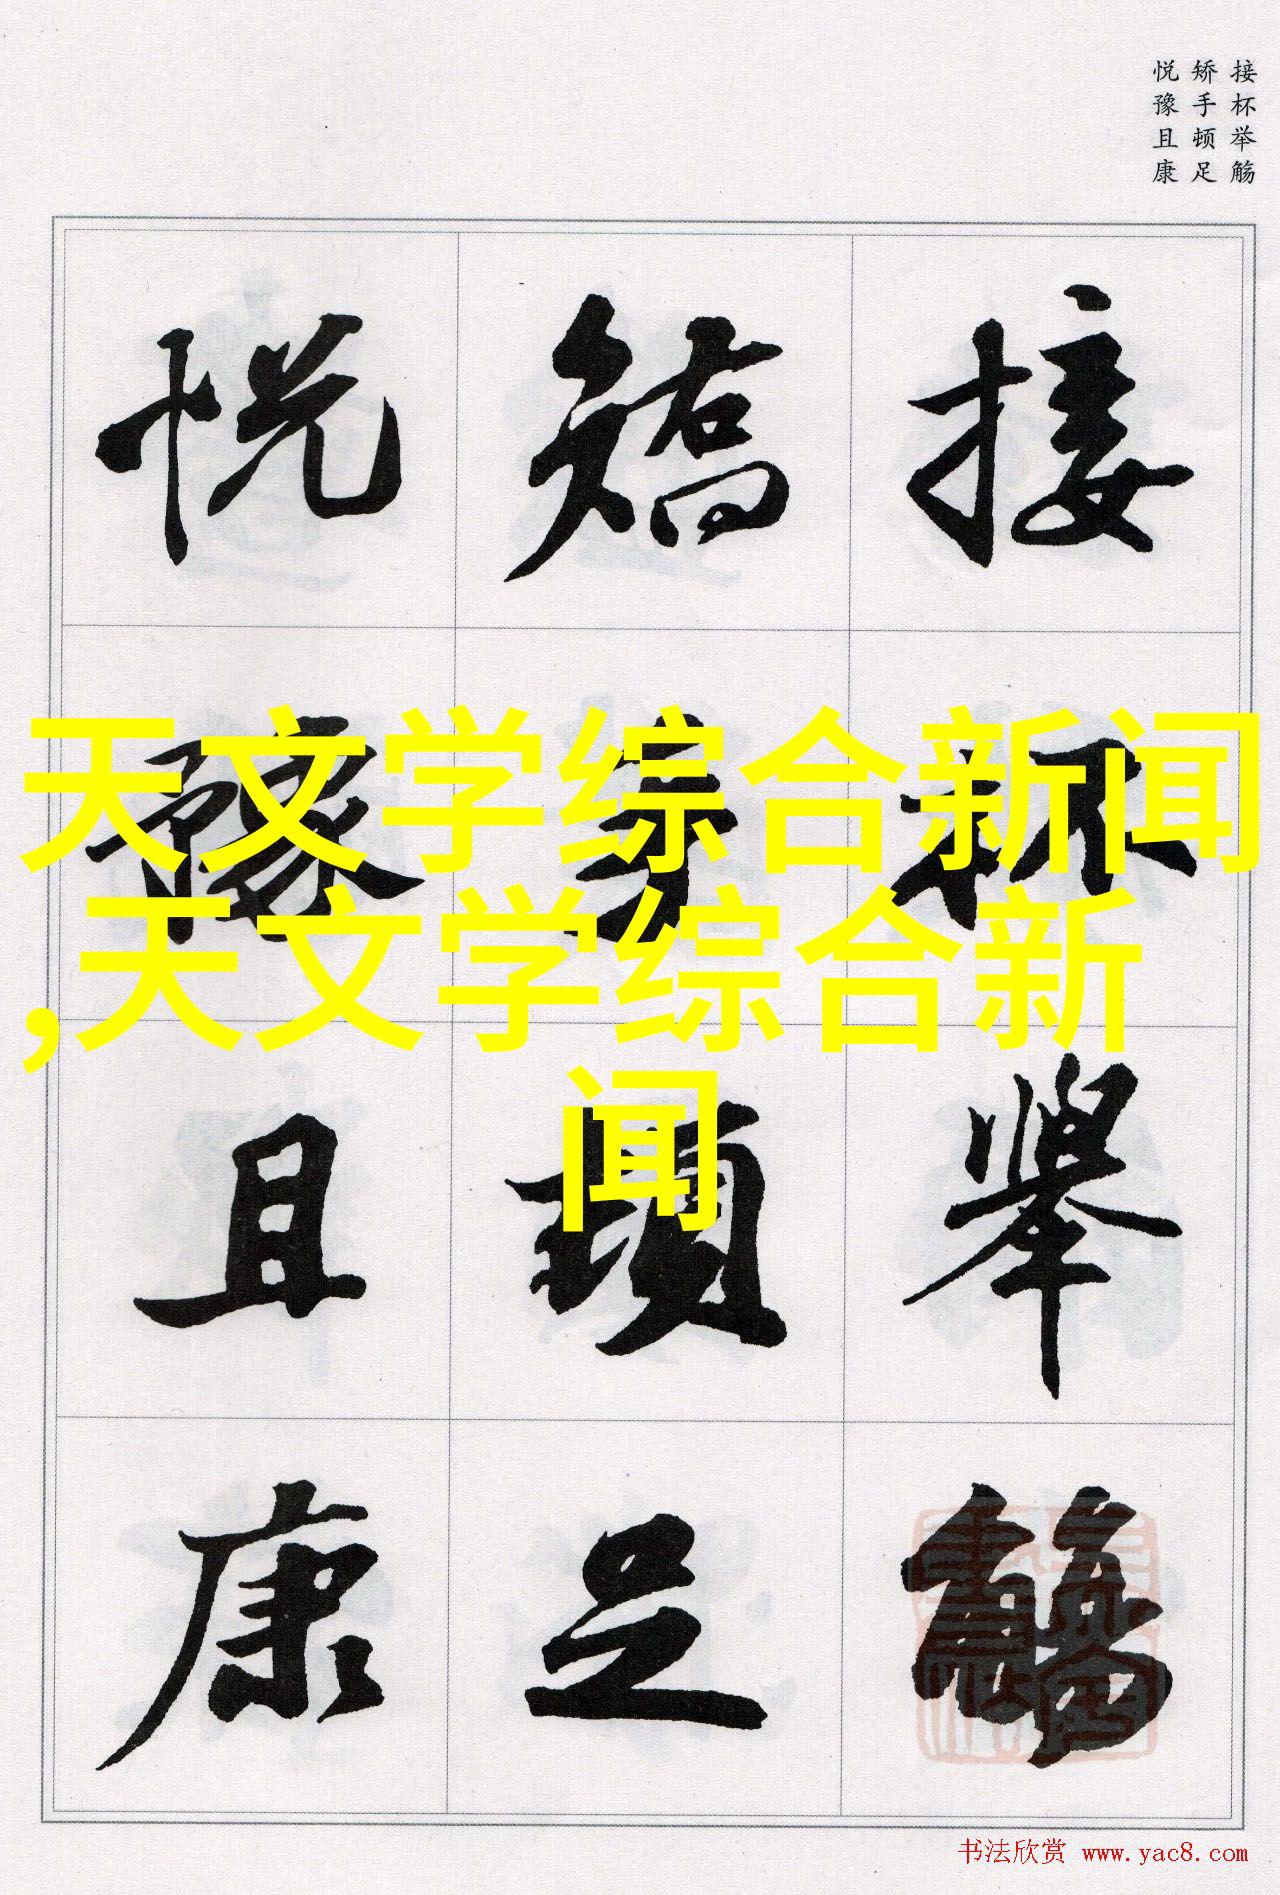 接杯举觞
矫手顿足
悦豫且康
接杯舉觴
矯手頓足
悦豫且康
天文学综合新闻
,天文学综合新
闻
书法欣赏 www.yac8.com